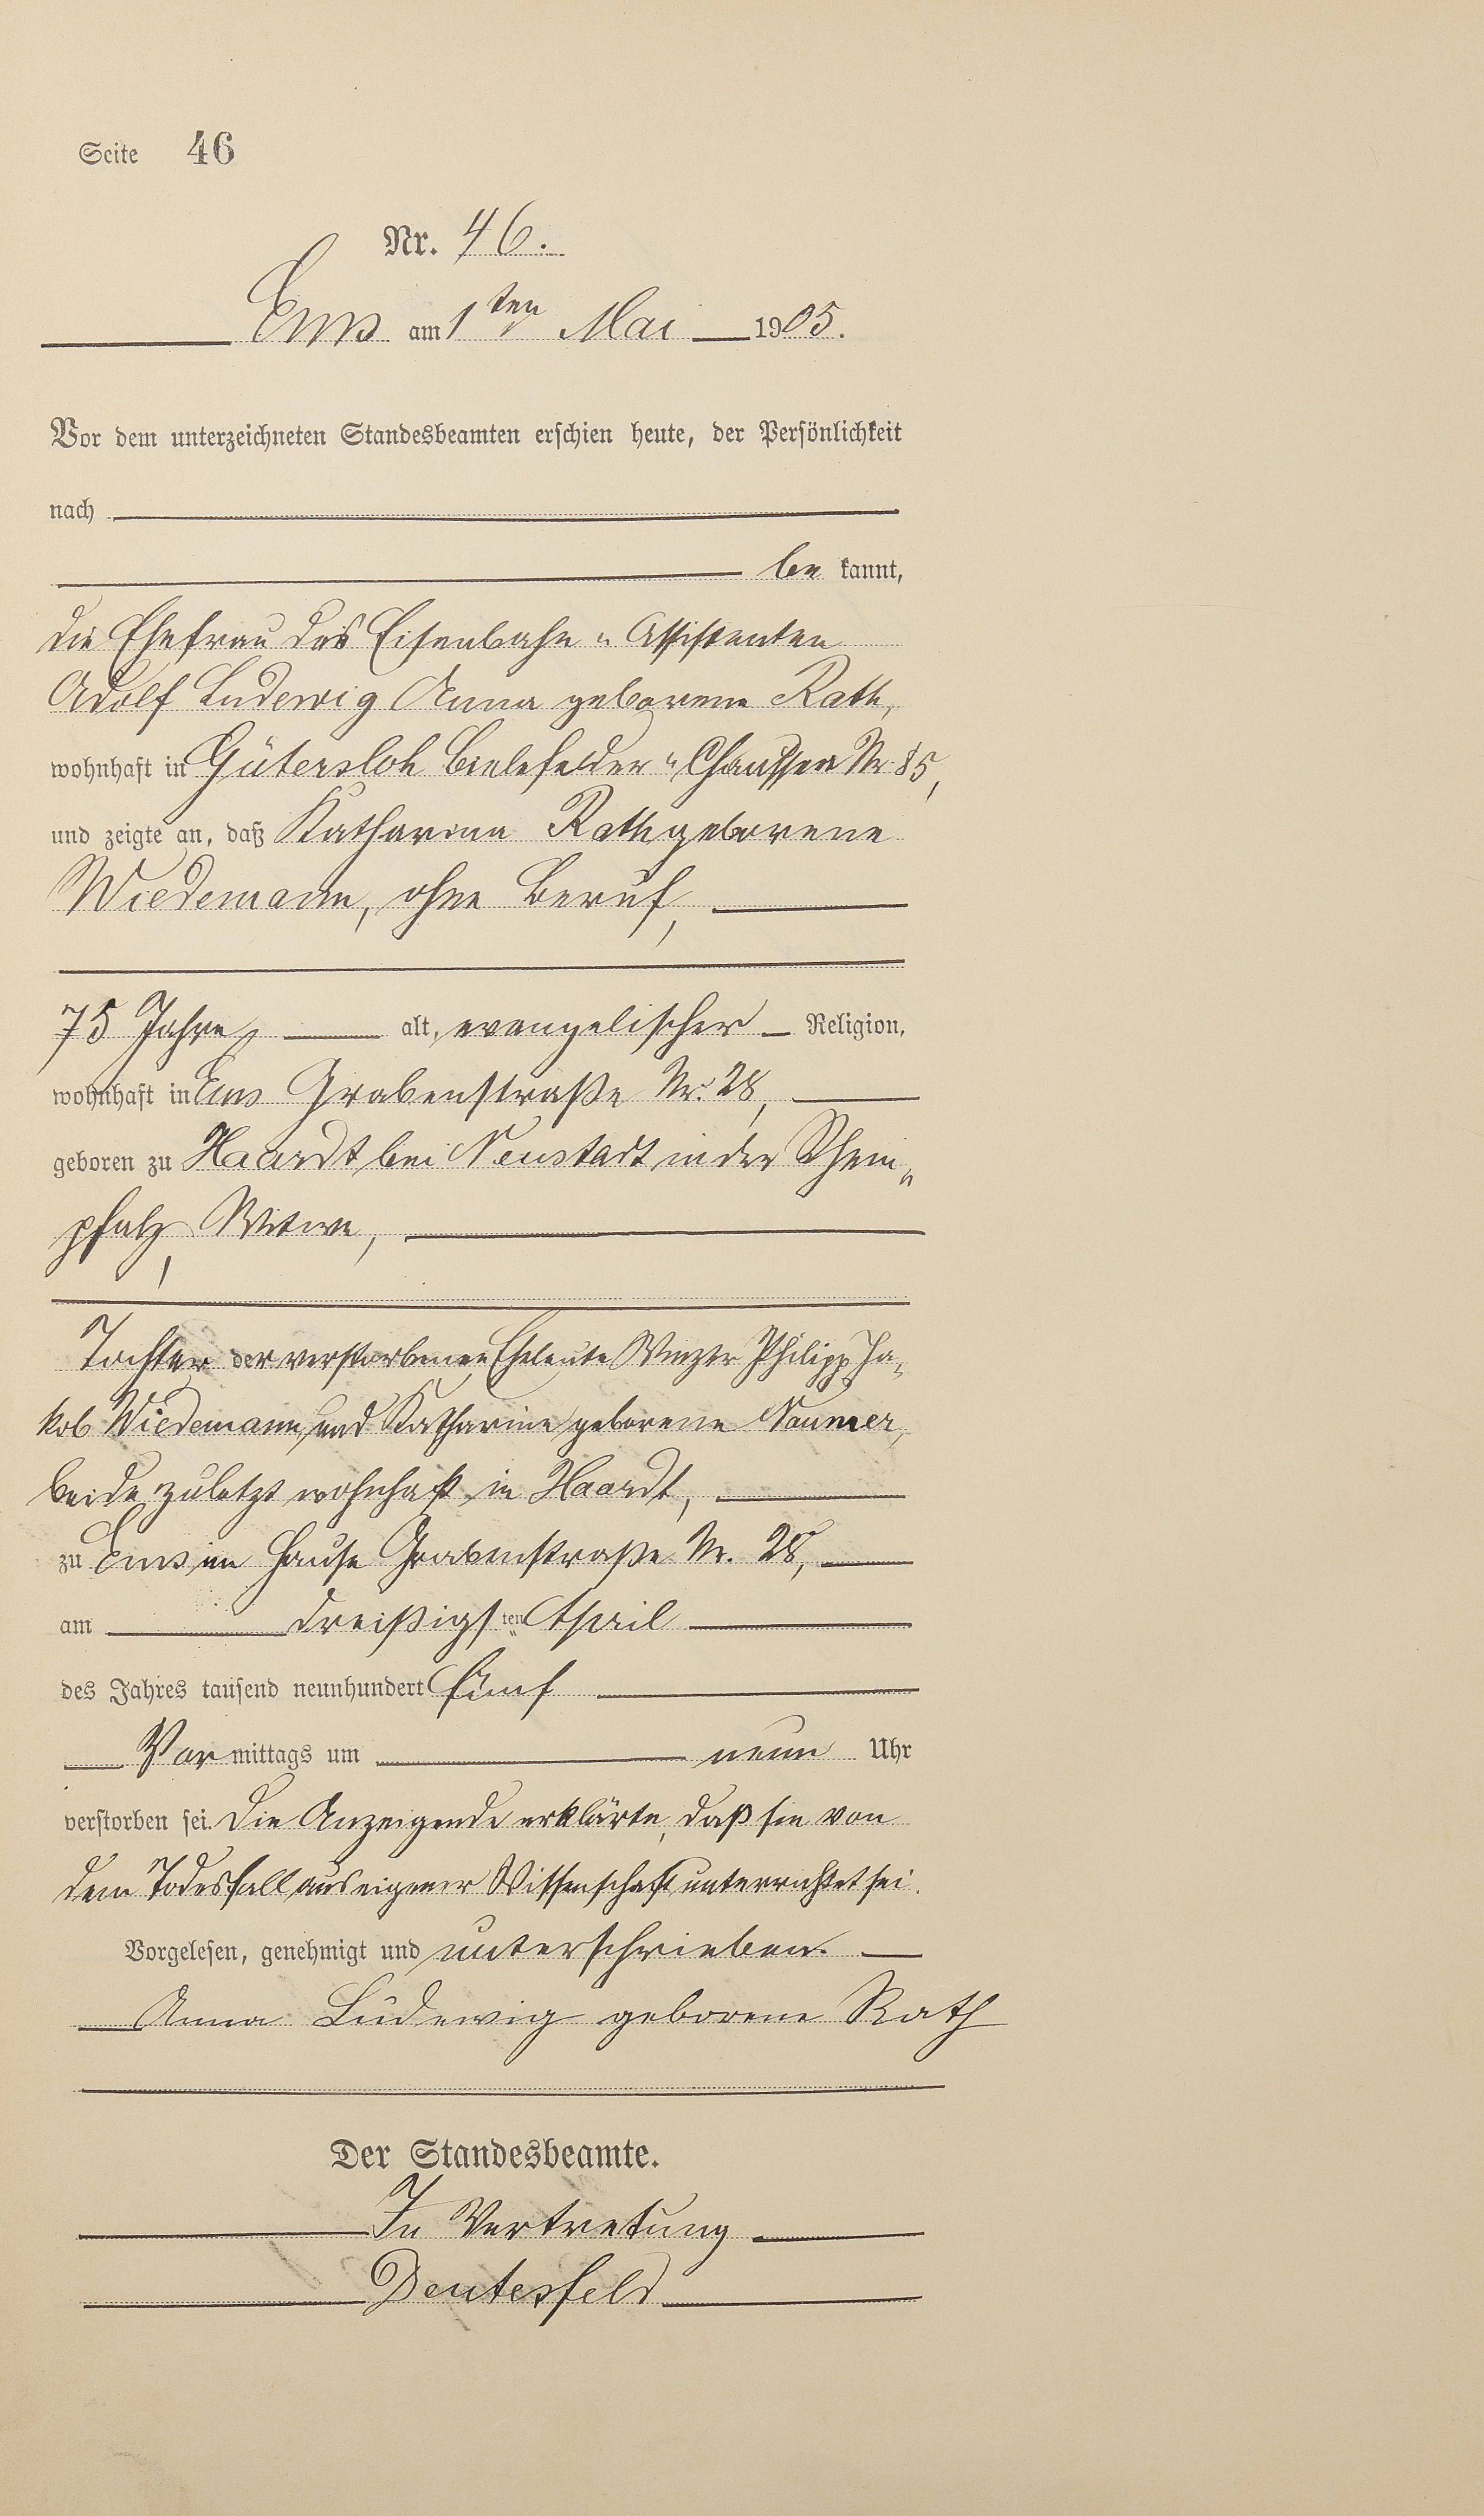 Seite 46
Nr. 46.
Ems am 1ten Mai 1905.
Vor dem unterzeichneten Standesbeamten erschien heute, der Persönlichkeit
nach
be kannt,
die Ehefrau des Eisenbahn-Assistenten
Adolf Ludewig Anna geborene Rath,
wohnhaft in Gütersloh Bielefelder-Chaussee Nr. 85,
und zeigte an, daß Katharina Rath geborene
Wiedemann, ohne Beruf,
75 Jahre, alt, evangelischer Religion,
wohnhaft in Ems Grabenstraße Nr. 28,
geboren zu Haardt bei Neustadt in der Rhein-
pfalz, Witwe,
Tochter der verstorbenen Eheleute Winzer Philipp Ja-
kob Wiedemann, und Katharina geborene Naumer,
beide zuletzt wohnhaft in Haardt,
zu Ems im Hause Grabenstraße Nr. 28,
am dreißigsten April
des Jahres tausend neunhundert fünf
Vor mittags um neun Uhr
verstorben sei. Die Anzeigende erklärte, daß sie von
dem Todesfall aus eigener Wissenschaft unterrichtet sei.
Vorgelesen, genehmigt und unterschrieben.
Anna Ludewig geborene Rath
Der Standesbeamte.
In Vertretung
Deutesfeld